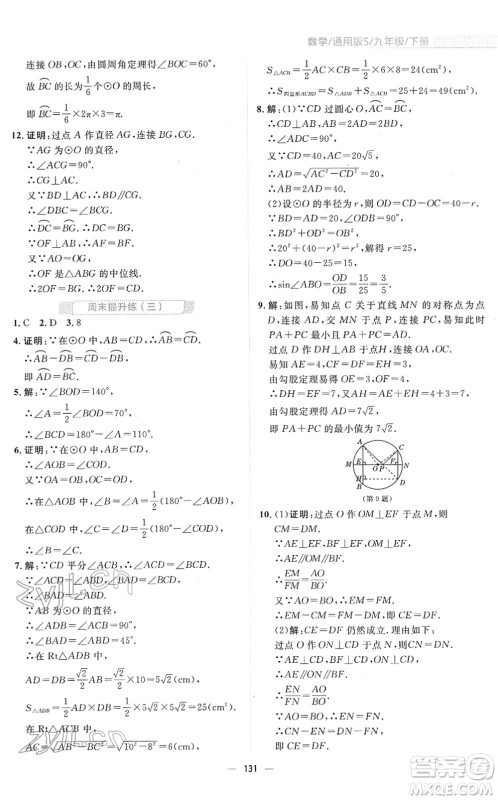 数学/通用版S/九年级/下册
根据题意,得∠BOC=60°,
故BC的长等于⊙O的周长的1/6,
即BC=1/6×2π×3=π.
12.证明:过点A作直径AG,连接CG.
∵AG为⊙O的直径,
∴∠ACG=90°.
∴CG⊥AC.
又∵BD⊥AC,∴CG∥BD.
∴∠DBC=∠BCG.
∴DC=BG.∴DC=BG.
∵OF⊥AB,∴AF=BF.
又∵OA=OG,
∴OF是△ABG的中位线.
∴2OF=BG.∴2OF=CD.
周末提升练(三)
1.C 2.D 3.8
4.证明:∵在⊙O中,AB=CD,∴AB=CD.
∴AB-DB=CD-DB.
即AD=BC.∴AD=BC.
5.解:∵∠BOD=120°,
∴∠A=1/2∠BOD=60°.
∴∠BCD=180°-∠A=120°.
又∵OA⊥BC,
∴AB=AC,
∴∠AOB=∠AOC=1/2(180°-∠BOD)
=30°.
∴∠CDO=1/2∠AOC=15°.
7.解:∵CD平分∠ACB,
∴∠ACD=∠BCD.
∴AD=BD.
∴AD=BD.
∵AB为⊙O的直径,
∴∠ADB=∠ACB=90°.
∴在Rt△ADB中,
AD=DB=√2/2 AB=√2/2×10=5√2(cm).
S△ADB=1/2AD×DB=1/2×5√2×5√2=25(cm²).
在Rt△ACB中,
AC=√(AB²-CB²)=√(10²-8²)=6(cm),
S△ACB=1/2AC×CB=1/2×6×8=24(cm²),
∴S四边形ACBD=S△ADB+S△ACB=25+24=49(cm²).
8.解:(1)∵CD过圆心O,AC=BC,
∴CD⊥AB,∴AD=BD.
∵AB=CD=40,∴AD=20.
又∵CD=40,AC=20√5,
∴AD=√(AC²-CD²)=20.
∴AB=2AD=40.
(2)设⊙O的半径为r,则OD=CD-OC=40-r.
∵CD⊥AB,
∴BD²+OD²=OB².
∴20²+(40-r)²=r²,解得r=25.
∴OD=40-r=15.
∴sin∠ABO=OD/OB=15/25=3/5.
9.解:如图,易知点C关于直径MN的对称点为点
D,连接AD交MN于点P,连接PC,此时
PA+PC最小.
过点D作DH⊥AB于点H,连接OA,OC.
易知OE=3,OF=4,
由勾股定理易得AE=4,CF=3,
∴DH=EF=7,AH=AE+EH=4+3=7.
由勾股定理得AD=7√2,
即PA+PC的最小值为7√2.
A
C
M
E
O
P
F
N
H
D
B
(第9题)
10.(1)证明:过点O作OM⊥EF于点M,则
CM=DM.
∵AE⊥EF,BF⊥EF,OM⊥EF,
∴AE∥OM∥BF.
∴EM/FM=AO/BO.
又∵AO=BO,∴EM=FM.
∴EM-CM=FM-DM,即CE=DF.
(2)解:CE=DF仍然成立.理由如下:
过点O作ON⊥CD于点N,则CN=DN.
∵AE⊥EF,BF⊥EF,ON⊥CD,
∴AE∥ON∥BF,
∴EN/FN=AO/BO.
又∵AO=BO,∴EN=FN.
∴EN-CN=FN-DN,即CE=DF.
131